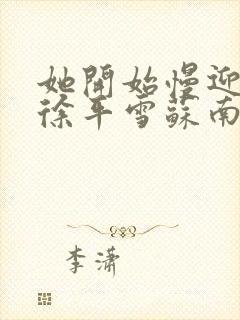 她開始慢迎
徐年雪蘇南
李瀟